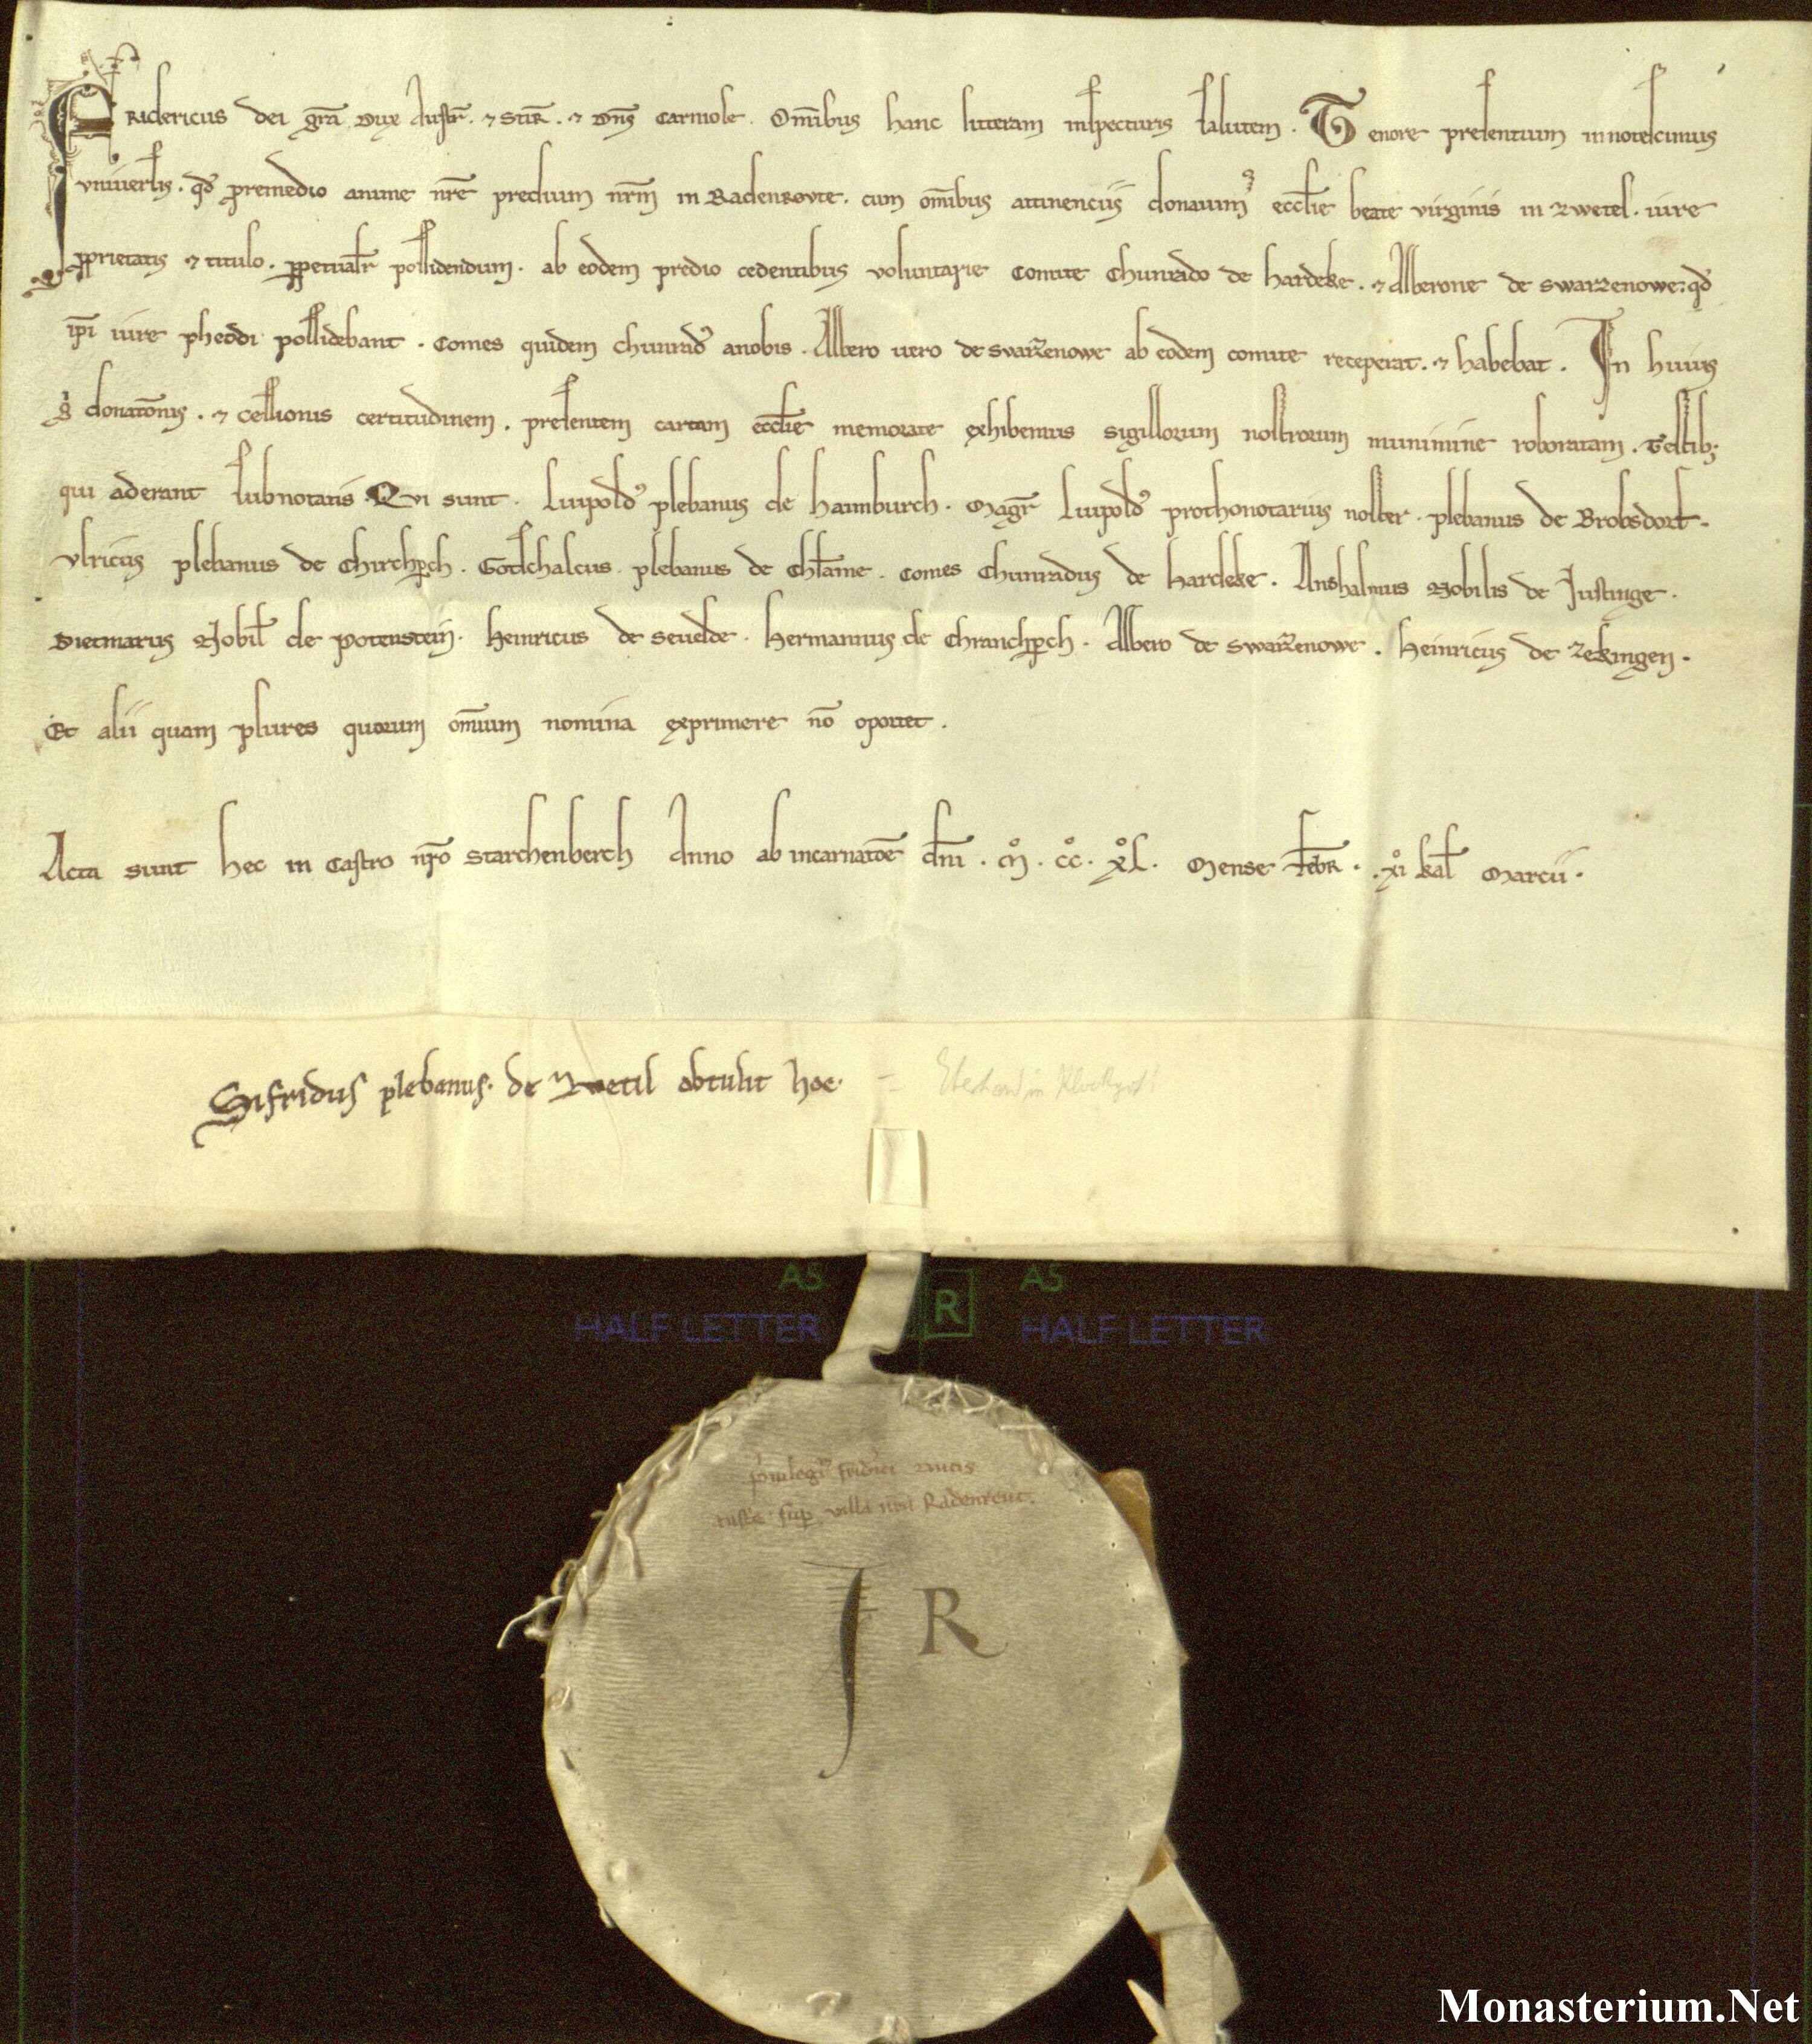 Fridericus dei gr̄a Dux Austr̄. ⁊ Stir̄. ⁊ Dn̄s Carniole. Om̄ibus hanc litteram inspecturis salutem. Tenore presentium innotescimus
vniuersis. qd̄ ꝓremedio anime nr̄e predium nr̄m in Radenrovte. cum om̄ibus attinenciis donauimꝰ eccl̄ie beate virginis in zwetel. iure
ꝓprietatis ⁊ titulo. ꝑpetualr̄ possidendum. ab eodem predio cedentibus voluntarie Comite Chunrado de hardeke. ⁊ Alberone de swarzenowe. qd̄
ip̄i iure pheodi possidebant. Comes quidem chunradꝰ anobis. Albero uero de svarzenowe ab eodem comite receperat. ⁊ habebat. In huius
gͦ donatōnis. ⁊ cessionis certitudinem. presentem cartam eccl̄ie memorate exhibemus sigillorum nostrorum munimine roboratam. Testib;
qui aderant subnotatis. Qvi sunt. Liupoldꝰ plebanus de hainburch. Magr̄ Liupoldꝰ prothonotarius noster. plebanus de Brobsdorf.
vlricus plebanus de Chirchꝑch. Gotschalcus plebanus de Chl̄ame. Comes Chunradus de hardeke. Anshalmus Nobilis de Justinge.
Dietmarus Nobil̄ de potenstein. Heinricus de sevelde. Hermannus de Chranchꝑch. Albero de swarzenowe. Heinricus de zekingen.
Et alii quam plures quorum om̄ium nomina exprimere nō oportet.
Acta sunt hec in Castro nr̄o Starchenberch Anno ab incarnatōe dn̄i. Mͦ. ccͦ. xͦl. Mense Febr̄. xͦi kal̄ Marcii.
Sifridus plebanus. de Zwetil obtulit hoc.
AS R AS
HALF LETTER HALF LETTER
p̄uilegiū fridrici ducis
austrie sup villa nr̄a Radenreut.
J R
Monasterium.Net